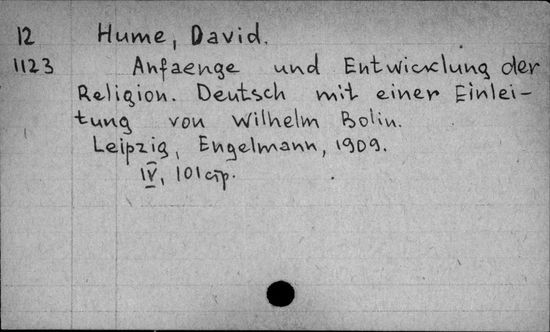 12 Hume, David.
1123 Anfaenge und Entwicklung der
Religion. Deutsch mit einer Einlei-
tung von Wilhelm Bolin.
Leipzig, Engelmann, 1909.
IV, 101 стр.